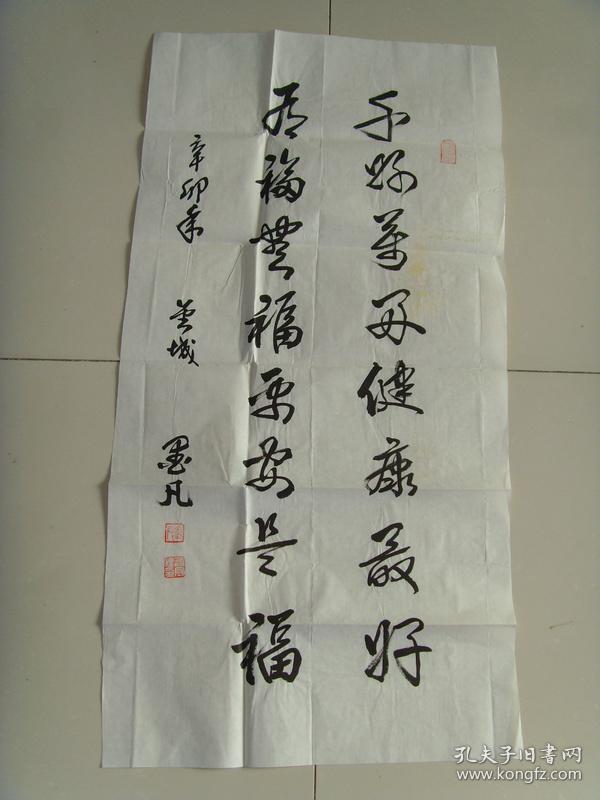 千好万好健康最好
有福無福平安是福
辛卯年 墨凡
孔夫子旧书网
www.kongfz.com